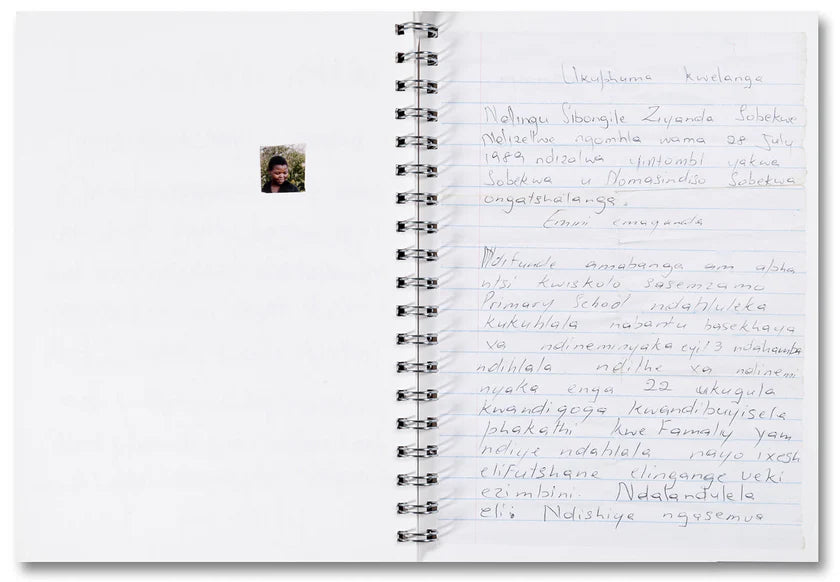 Ukuphuma kwelanga
Ndingu Sibongile Ziyanda Sobekwa
Ndizelwe ngomhla wama 28 July
1989 ndizalwa yintombi yakwa
Sobekwa u Nomasindiso Sobekwa
ongatshatanga.
Emini emaqanda
Ndifunde amabanga am apha
ntsi kwiskolo sasemzamo
Primary School ndahluleka
kukuhlala nabantu basekhaya
xa ndineminyaka eyi13 ndahamba
ndihlala ndilhe xa ndinemi
nyaka enga 22 ukugula
kwandigoqa kwandibuyisela
phakathi kwe Famaliy yam
ndiye ndahlala nayo ixesh
elifutshane elingange veki
ezimbini. Ndalandulela
eli. Ndishiya ngasemva